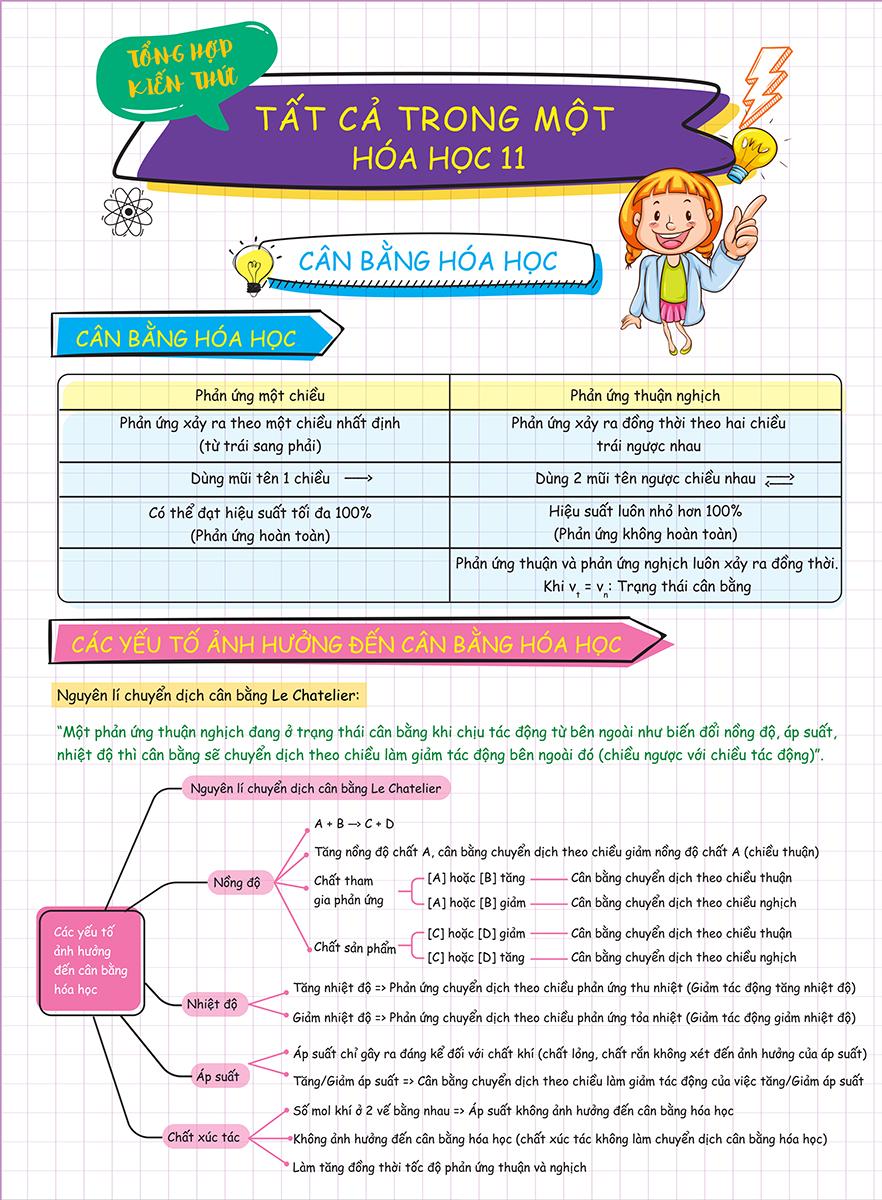 TỔNG HỢP
KIẾN THỨC
TẤT CẢ TRONG MỘT
HÓA HỌC 11
CÂN BẰNG HÓA HỌC
CÂN BẰNG HÓA HỌC
Phản ứng một chiều
Phản ứng thuận nghịch
Phản ứng xảy ra theo một chiều nhất định
(từ trái sang phải)
Phản ứng xảy ra đồng thời theo hai chiều
trái ngược nhau
Dùng mũi tên 1 chiều ⟶
Dùng 2 mũi tên ngược chiều nhau ⇌
Có thể đạt hiệu suất tối đa 100%
(Phản ứng hoàn toàn)
Hiệu suất luôn nhỏ hơn 100%
(Phản ứng không hoàn toàn)
Phản ứng thuận và phản ứng nghịch luôn xảy ra đồng thời.
Khi vₜ = vₙ: Trạng thái cân bằng
CÁC YẾU TỐ ẢNH HƯỞNG ĐẾN CÂN BẰNG HÓA HỌC
Nguyên lí chuyển dịch cân bằng Le Chatelier:
“Một phản ứng thuận nghịch đang ở trạng thái cân bằng khi chịu tác động từ bên ngoài như biến đổi nồng độ, áp suất,
nhiệt độ thì cân bằng sẽ chuyển dịch theo chiều làm giảm tác động bên ngoài đó (chiều ngược với chiều tác động)”.
Các yếu tố
ảnh hưởng
đến cân bằng
hóa học
Nguyên lí chuyển dịch cân bằng Le Chatelier
Nồng độ
A + B ⟶ C + D
Tăng nồng độ chất A, cân bằng chuyển dịch theo chiều giảm nồng độ chất A (chiều thuận)
Chất tham
gia phản ứng
[A] hoặc [B] tăng
Cân bằng chuyển dịch theo chiều thuận
[A] hoặc [B] giảm
Cân bằng chuyển dịch theo chiều nghịch
Chất sản phẩm
[C] hoặc [D] giảm
Cân bằng chuyển dịch theo chiều thuận
[C] hoặc [D] tăng
Cân bằng chuyển dịch theo chiều nghịch
Nhiệt độ
Tăng nhiệt độ => Phản ứng chuyển dịch theo chiều phản ứng thu nhiệt (Giảm tác động tăng nhiệt độ)
Giảm nhiệt độ => Phản ứng chuyển dịch theo chiều phản ứng tỏa nhiệt (Giảm tác động giảm nhiệt độ)
Áp suất
Áp suất chỉ gây ra đáng kể đối với chất khí (chất lỏng, chất rắn không xét đến ảnh hưởng của áp suất)
Tăng/Giảm áp suất => Cân bằng chuyển dịch theo chiều làm giảm tác động của việc tăng/Giảm áp suất
Chất xúc tác
Số mol khí ở 2 vế bằng nhau => Áp suất không ảnh hưởng đến cân bằng hóa học
Không ảnh hưởng đến cân bằng hóa học (chất xúc tác không làm chuyển dịch cân bằng hóa học)
Làm tăng đồng thời tốc độ phản ứng thuận và nghịch